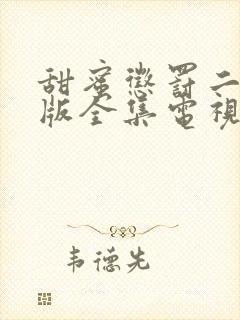 甜蜜懲罰二
版全集電視
韦德先